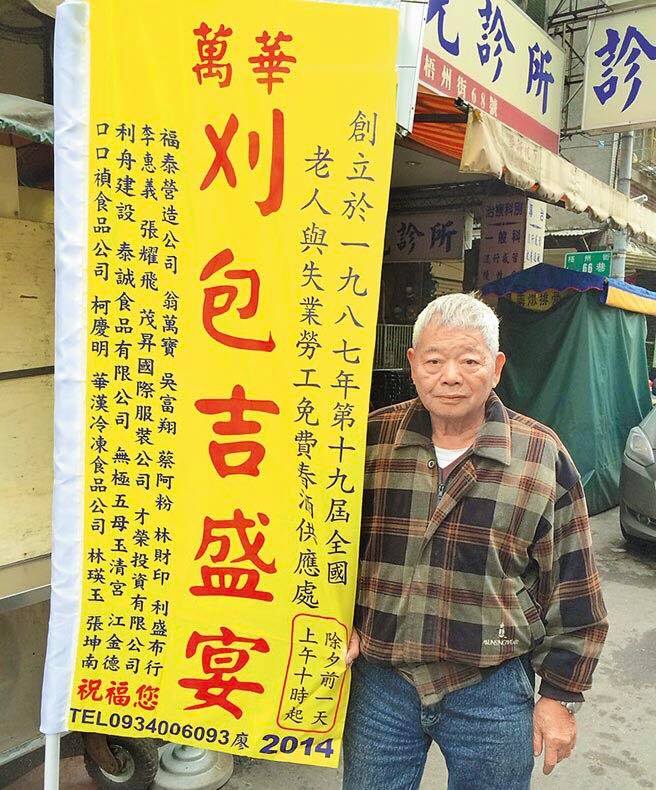 萬華
刈包吉盛宴
創立於一九八七年第十九屆全國
老人與失業勞工免費春 供應處
除夕前一天
上午十時起
福泰營造公司 翁萬寶 吳富翔 蔡阿粉 林財印 利盛布行
李惠義 張耀飛 茂昇國際服裝公司 才榮投資有限公司
利舟建設 泰誠食品有限公司 無極五母玉清宮 江金德
口口禎食品公司 柯慶明 華漢冷凍食品公司 林瑛玉 張坤南
祝福您
TEL0934006093廖 2014
診所
梧州街68號
診
診所
治療科別
一般科
梧州街
66巷
MUNSINGWEAR